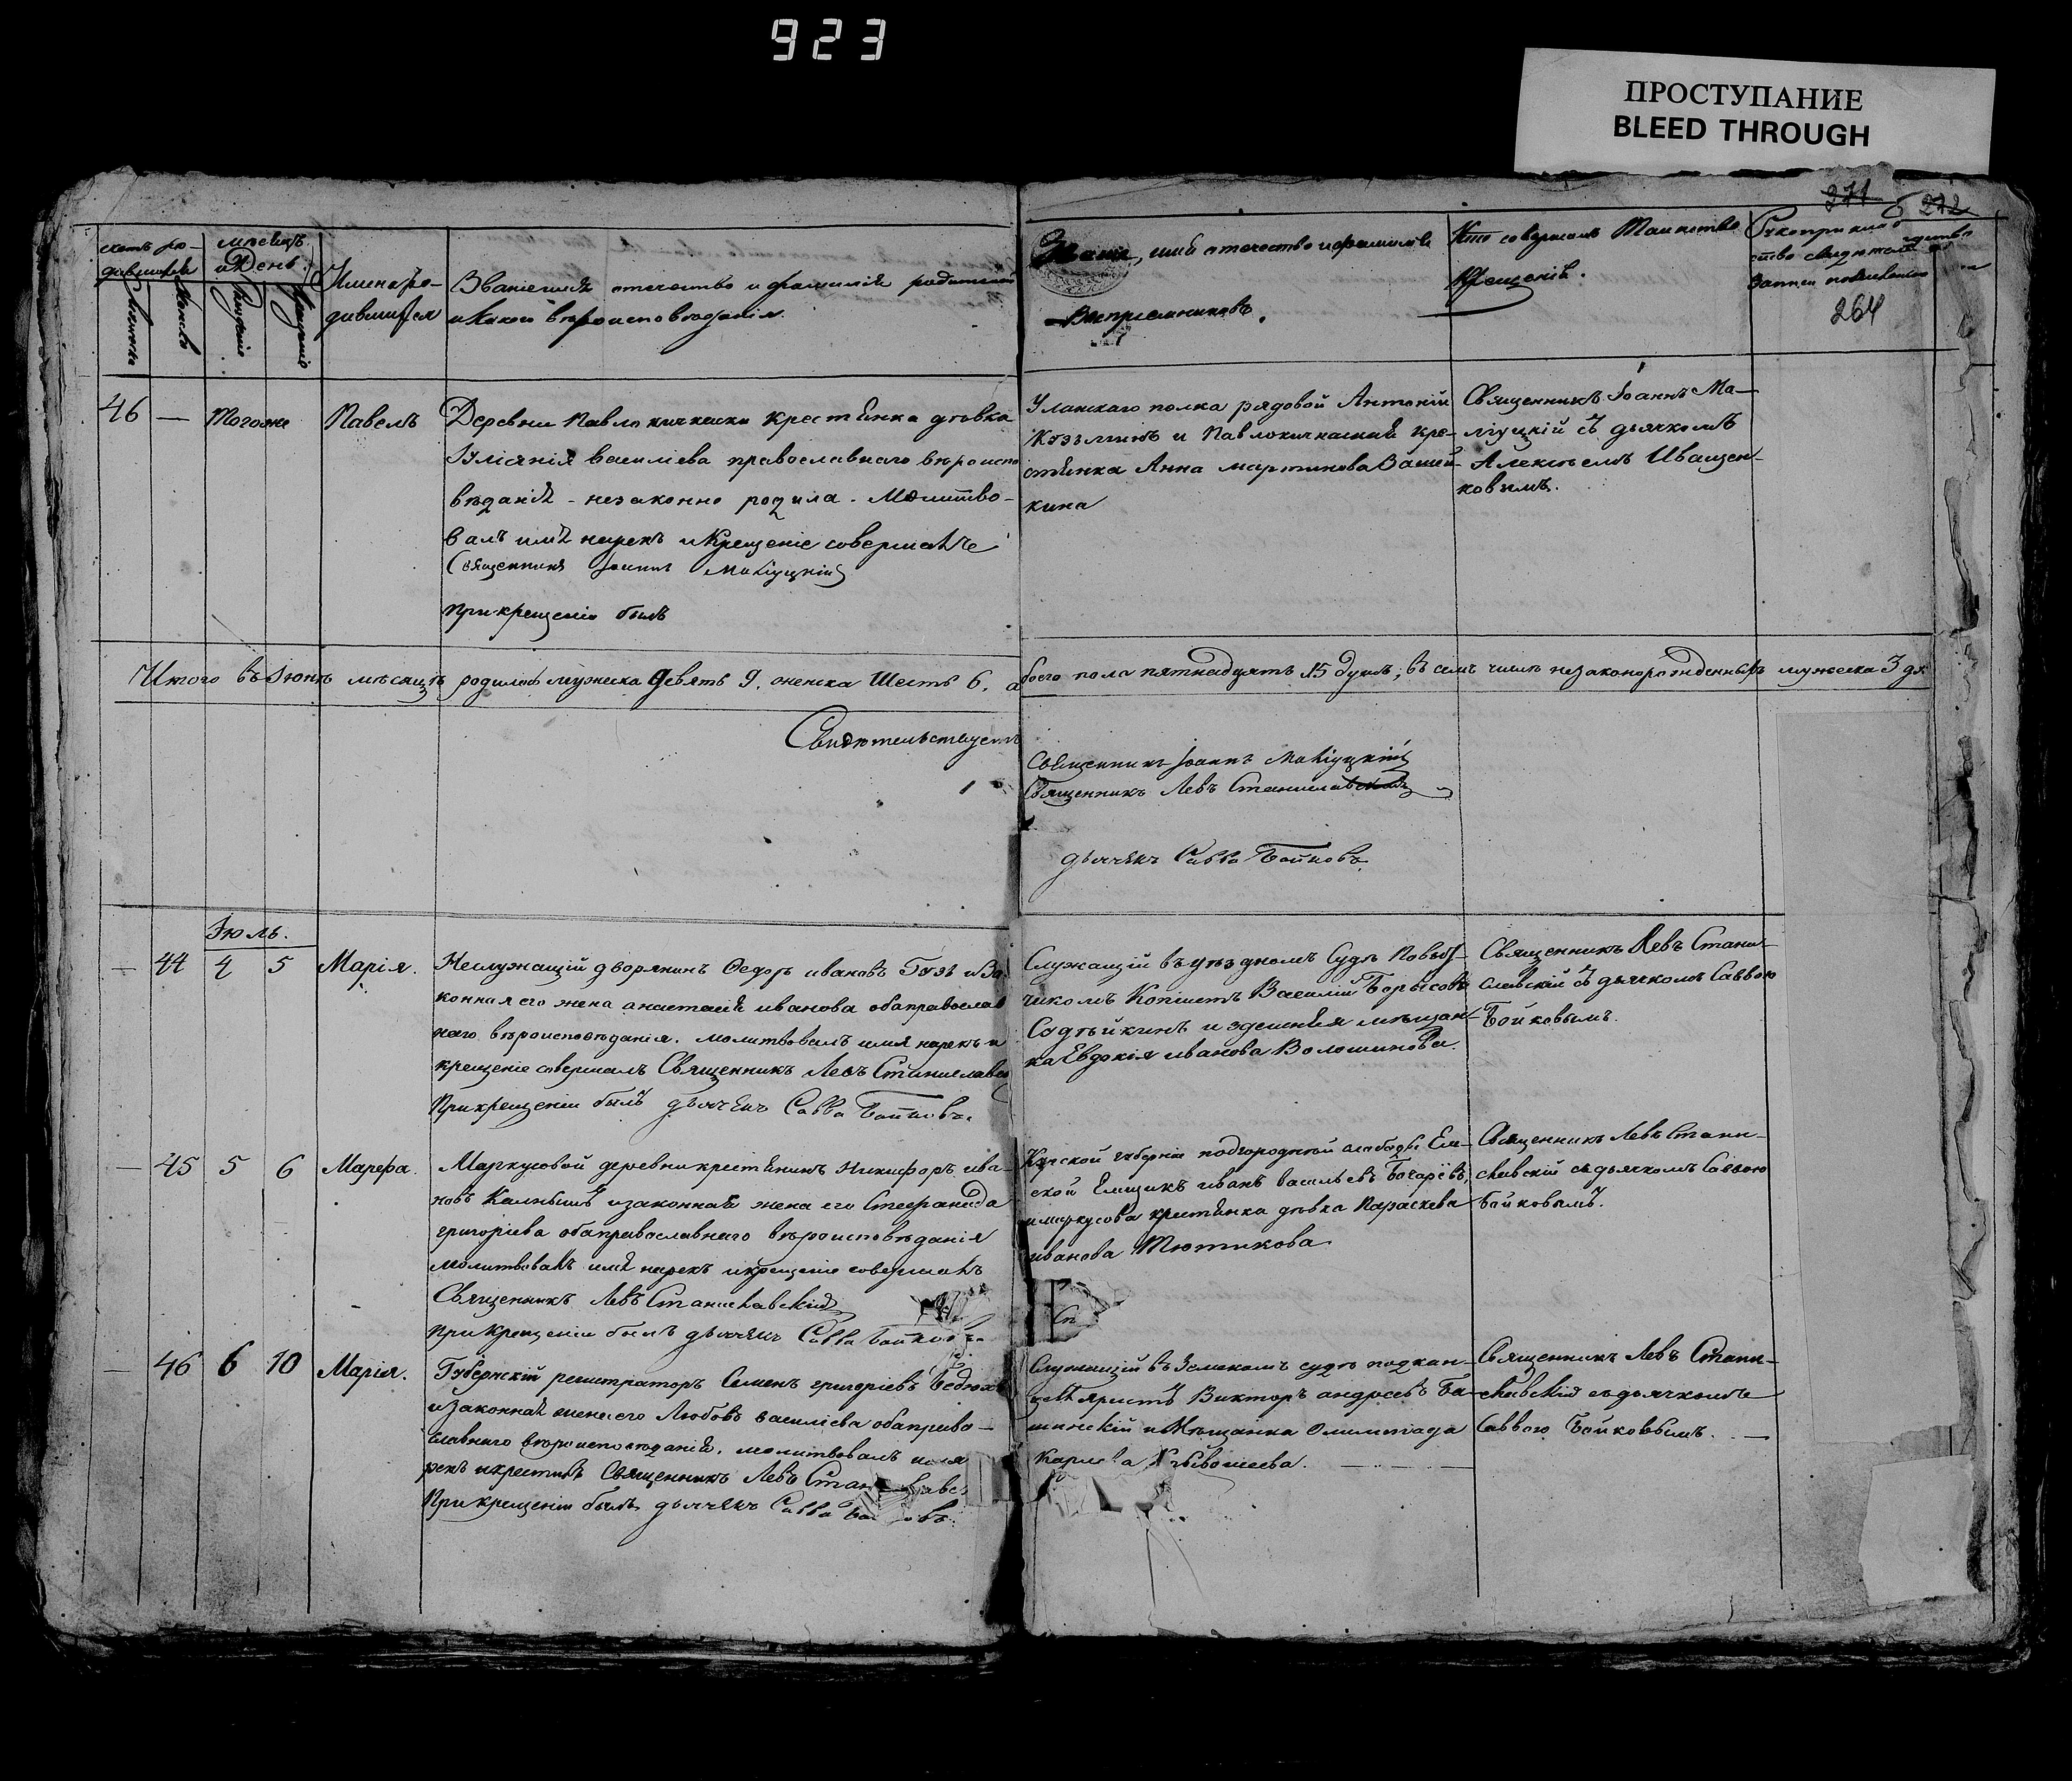 923
ПРОСТУПАНИЕ
BLEED THROUGH
271 272
счетъ ро-
дившихся
Мужеска
Женска
мѣсяцъ
и День
Рожденія
Крещенія
Имена ро-
дившихся
Званіе имя отечество и фамилія родителей
и какого вѣроисповѣданія.
Званіе, имя отечество и фамилія
Воспріемниковъ.
Кто совершалъ Таинство
Крещенія.
Рукоприклад
ство свидѣтелей
записи по желанію
264
46 — Тогоже Павелъ
Деревни Павлокичкаски крестянка дѣвка
Іуліянія Василіева православнаго вѣроиспо
вѣданія - незаконно родила. Молитво-
валъ имя нарекъ и Крещеніе совершалъ
Священникъ Іоаннъ
При крещеніи былъ
Уланскаго полка рядовой Антоній
Козьминъ и Павлокичкаская кре-
стянка Анна Мартинова
кина
Священникъ Іоаннъ Ма-
съ дьячкомъ
Алексѣемъ Иващен-
ковымъ.
Итого въ Іюнѣ мѣсяцѣ родилось мужеска Девять 9. женска Шесть 6. а обоего пола пятнадцять 15 душъ; въ семъ числѣ незаконорожденныхъ мужеска 3 дх.
Свидѣтельствуемъ
Священникъ Іоаннъ
Священникъ Левъ Станиславскій
дьячекъ Савва Бойковъ.
Іюль.
— 44 4 5 Марія.
Неслужащій дворянинъ Федоръ Ивановъ и за
конная его жена Анастасія Иванова оба православ
наго вѣроисповѣданія. Молитвовалъ имя нарекъ и
крещеніе совершалъ Священникъ Левъ Станиславск
При крещеніи былъ дьячекъ Савва Бойковъ.
Служащій въ уѣздномъ Судѣ Повыт-
чикомъ Копіистъ Василій Борисовъ
Судѣйкинъ и здешняя мѣщан-
ка Евдокія Иванова Волошинова.
Священникъ Левъ Стани-
славскій съ дьячкомъ Саввою
Бойковымъ.
— 45 5 6 Марѳа.
Маркусовой деревни крестянинъ Никифоръ Ива
новъ Калнышъ и законная жена его Стефанида
Григоріева оба православнаго вѣроисповѣданія
Молитвовалъ имя нарекъ и крещеніе совершалъ
Священникъ Левъ Станиславскій
При крещеніи былъ дьячекъ Савва Бойковъ.
Курской губерніи подгородной слободы Ям-
ской Ямщикъ Иванъ Васильевъ Бочарёвъ,
и Маркусова крестянка дѣвка Параскева
Иванова Тютикова
Священникъ Левъ Стани-
славскій съ дьячкомъ Саввою
Бойковымъ.
— 46 6 10 Марія.
Губернскій регистраторъ Семенъ Григоріевъ
и законная жена его Любовъ Василіева оба право-
славнаго вѣроисповѣданія. Молитвовалъ имя
рекъ и крестилъ Священникъ Левъ Станиславс
При крещеніи былъ дьячекъ Савва Бойковъ.
Служащій въ Земскомъ судѣ подкан-
целяристъ Викторъ Андреевъ Ба-
шинскій и Мѣщанка Олимпіада
Карпова Кривошеева.
Священникъ Левъ Стани-
славскій съ дьячкомъ
Саввою Бойковымъ.